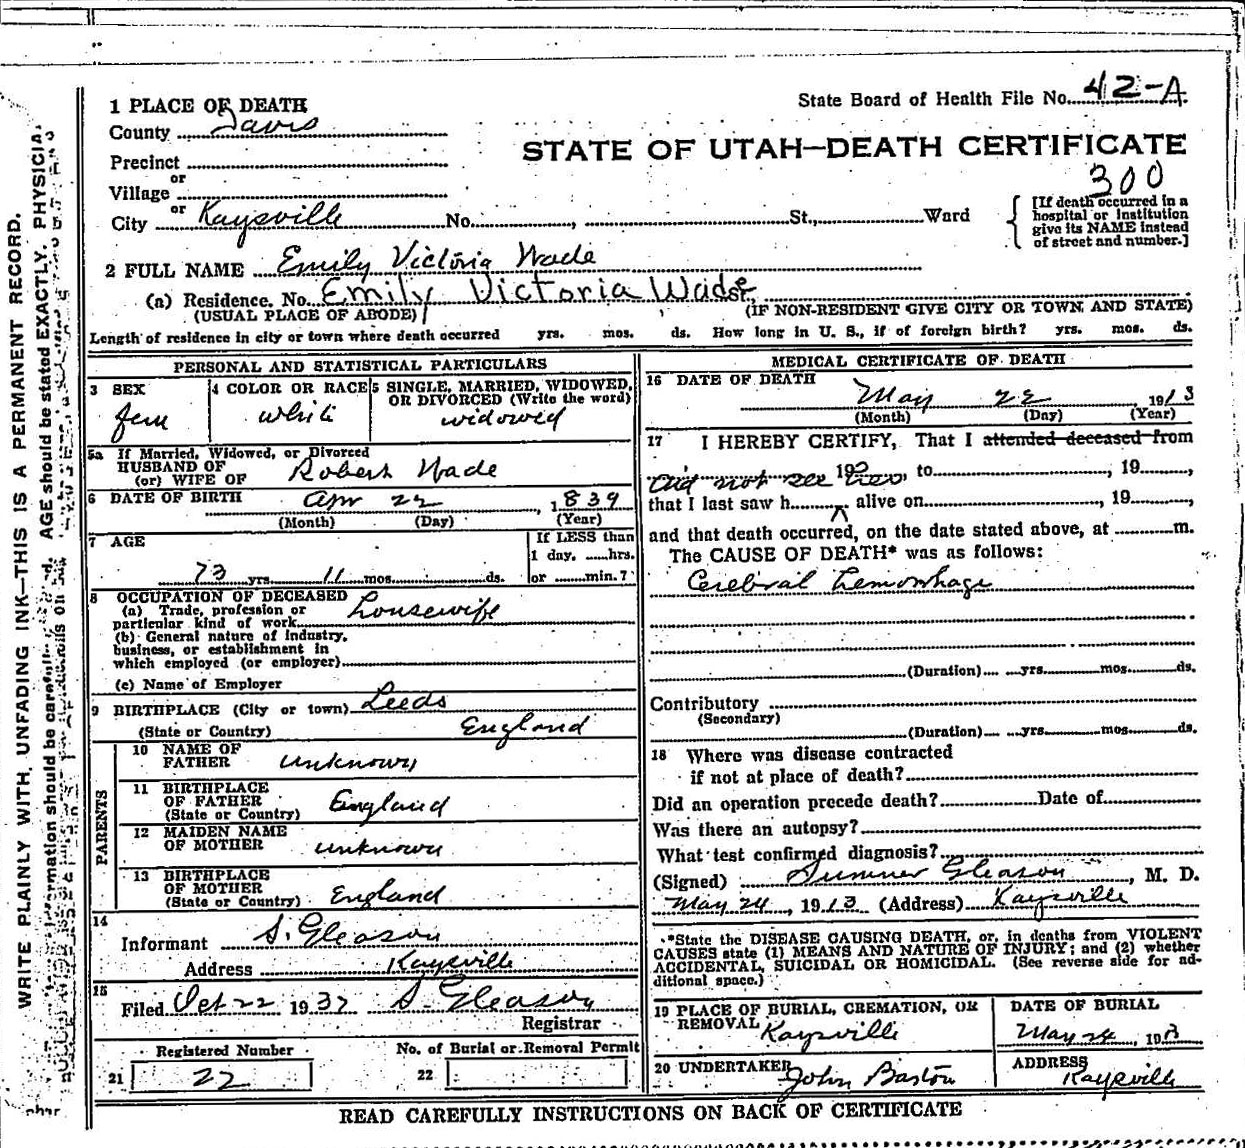 State Board of Health File No. 42-A
1 PLACE OF DEATH
County Davis
STATE OF UTAH—DEATH CERTIFICATE
300
Precinct
or
Village
or
City Kaysville No. , St., Ward
[If death occurred in a hospital or institution give its NAME instead of street and number.]
2 FULL NAME Emily Victoria Wade
(a) Residence. No. Emily Victoria Wade St.,
(USUAL PLACE OF ABODE) (IF NON-RESIDENT GIVE CITY OR TOWN AND STATE)
Length of residence in city or town where death occurred yrs. mos. ds. How long in U. S., if of foreign birth? yrs. mos. ds.
WRITE PLAINLY WITH UNFADING INK—THIS IS A PERMANENT RECORD.
AGE should be stated EXACTLY. PHYSICIA
PERSONAL AND STATISTICAL PARTICULARS
3 SEX
fem
4 COLOR OR RACE
white
5 SINGLE, MARRIED, WIDOWED,
OR DIVORCED (Write the word)
widowed
5a If Married, Widowed, or Divorced
HUSBAND OF
(or) WIFE OF Robert Wade
6 DATE OF BIRTH Apr 22, 1839
(Month) (Day) (Year)
7 AGE
73 yrs. 11 mos. ds.
If LESS than
1 day, hrs.
or min.?
8 OCCUPATION OF DECEASED
(a) Trade, profession or
particular kind of work housewife
(b) General nature of industry,
business, or establishment in
which employed (or employer)
(c) Name of Employer
9 BIRTHPLACE (City or town) Leeds
(State or Country) England
PARENTS
10 NAME OF
FATHER unknown
11 BIRTHPLACE
OF FATHER
(State or Country) England
12 MAIDEN NAME
OF MOTHER unknown
13 BIRTHPLACE
OF MOTHER
(State or Country) England
14
Informant S. Gleason
Address Kaysville
15
Filed Oct 22 1937 S. Gleason
Registrar
Registered Number
21 22
No. of Burial or Removal Permit
22
MEDICAL CERTIFICATE OF DEATH
16 DATE OF DEATH
May 22, 1913
(Month) (Day) (Year)
17 I HEREBY CERTIFY, That I attended deceased from
did not see her 19 , to , 19 ,
that I last saw h alive on , 19 ,
and that death occurred, on the date stated above, at m.
The CAUSE OF DEATH* was as follows:
Cerebral hemorrhage
(Duration) yrs. mos. ds.
Contributory
(Secondary)
(Duration) yrs. mos. ds.
18 Where was disease contracted
if not at place of death?
Did an operation precede death? Date of
Was there an autopsy?
What test confirmed diagnosis?
(Signed) Sumner Gleason, M. D.
May 24, 1913 (Address) Kaysville
*State the DISEASE CAUSING DEATH, or, in deaths from VIOLENT
CAUSES state (1) MEANS AND NATURE OF INJURY; and (2) whether
ACCIDENTAL, SUICIDAL OR HOMICIDAL. (See reverse side for ad-
ditional space.)
19 PLACE OF BURIAL, CREMATION, OR
REMOVAL Kaysville
DATE OF BURIAL
May 24, 1913
20 UNDERTAKER John Barton
ADDRESS
Kaysville
READ CAREFULLY INSTRUCTIONS ON BACK OF CERTIFICATE